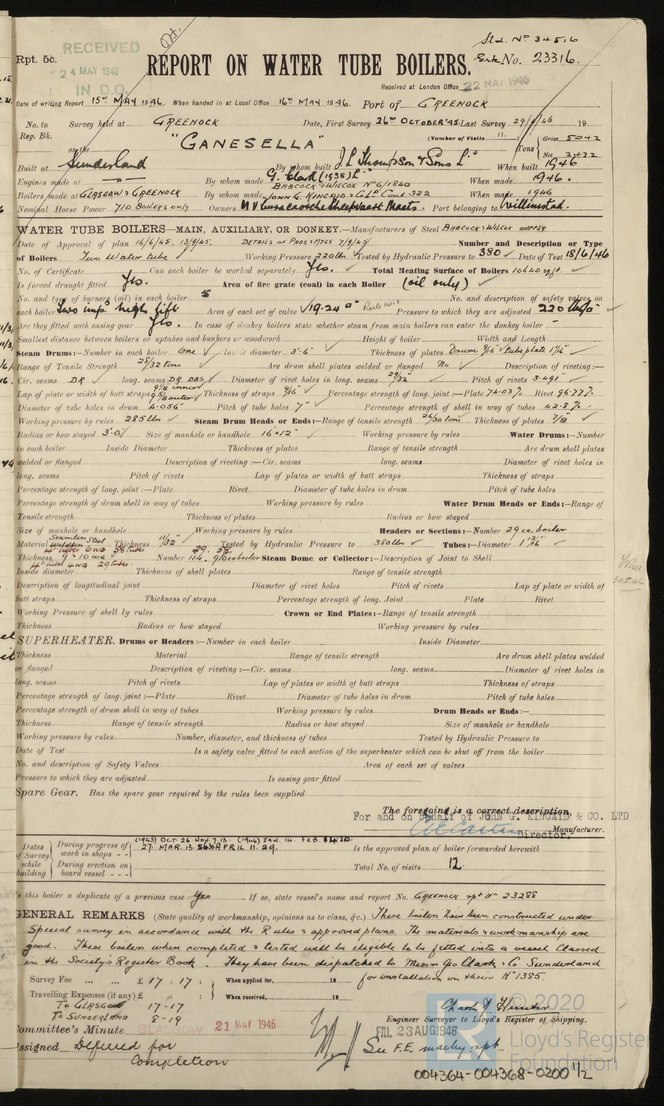 Sld. No 34516
Rpt. 5c.
RECEIVED
24 MAY 1946
IN D.O.
REPORT ON WATER TUBE BOILERS.
Grk. No. 23316.
Received at London Office 22 MAY 1946
Date of writing Report 15th MAY 1946. When handed in at Local Office 16th MAY 1946. Port of GREENOCK
No. in Survey held at GREENOCK Date, First Survey 26th OCTOBER '45 Last Survey 29/4/46 19
Reg. Bk. (Number of Visits 11.) Gross 5042
on the "GANESELLA" Tons Net
Built at Sunderland By whom built J.L. Thompson & Sons Ld When built 1946
Engines made at By whom made G. Clark (1938) Ld When made 1946.
Boilers made at GLASGOW & GREENOCK By whom made BABCOCK & WILCOX No 6/1840 JOHN G. KINCAID & Co Ld When made 1946
Nominal Horse Power 710 BOILERS ONLY Owners Port belonging to Willemstad.
WATER TUBE BOILERS—MAIN, AUXILIARY, OR DONKEY.—Manufacturers of Steel BABCOCK & WILCOX SUPPLY
Date of Approval of plan 16/6/45. 13/9/45. Number and Description or Type
of Boilers Two Water tube Working Pressure 220 lbs Tested by Hydraulic Pressure to 380 Date of Test 18/6/46
No. of Certificate Can each boiler be worked separately Yes. Total Heating Surface of Boilers 10640 sq ft
Is forced draught fitted Yes. Area of fire grate (coal) in each Boiler (oil only)
No. and type of burners (oil) in each boiler 5 No. and description of safety valves on
each boiler Two imp. high lift Area of each set of valves 19.24 □" Pressure to which they are adjusted 220 lbs/□"
Are they fitted with easing gear Yes. In case of donkey boilers state whether steam from main boilers can enter the donkey boiler
Smallest distance between boilers or uptakes and bunkers or woodwork Height of boiler Width and Length
Steam Drums:—Number in each boiler One Inside diameter 3'-6" Thickness of plates Drum 9/16" tubeplate 1 1/16"
Range of Tensile Strength 28/32 tons Are drum shell plates welded or flanged No Description of riveting:—
Cir. seams DR long. seams DR DBS Diameter of rivet holes in long. seams 29/32" Pitch of rivets 3.491"
Lap of plate or width of butt straps Thickness of straps 9/16" Percentage strength of long. joint:—Plate 74.03% Rivet 96.77%
Diameter of tube holes in drum 4.056" Pitch of tube holes 7" Percentage strength of shell in way of tubes 42.8%.
Working pressure by rules 285 lbs Steam Drum Heads or Ends:—Range of tensile strength 26/30 tons Thickness of plates 7/8"
Radius or how stayed 3'-0" Size of manhole or handhole 16"x12" Working pressure by rules Water Drums:—Number
in each boiler Inside Diameter Thickness of plates Range of tensile strength Are drum shell plates
welded or flanged Description of riveting:—Cir. seams long. seams Diameter of rivet holes in
long. seams Pitch of rivets Lap of plates or width of butt straps Thickness of straps
Percentage strength of long. joint:—Plate Rivet Diameter of tube holes in drum Pitch of tube holes
Percentage strength of drum shell in way of tubes Working pressure by rules Water Drum Heads or Ends:—Range of
Tensile strength Thickness of plates Radius or how stayed
Size of manhole or handhole Working pressure by rules Headers or Sections:—Number 29 ea. boiler
Material Seamless Steel Thickness 11/32" Tested by Hydraulic Pressure to 380 lbs Tubes:—Diameter
Thickness Number Steam Dome or Collector:—Description of Joint to Shell
Inside diameter Thickness of shell plates Range of tensile strength
Description of longitudinal joint Diameter of rivet holes Pitch of rivets Lap of plate or width of
butt straps Thickness of straps Percentage strength of long. Joint Plate Rivet
Working Pressure of shell by rules Crown or End Plates:—Range of tensile strength
Thickness Radius or how stayed Working pressure by rules
SUPERHEATER. Drums or Headers:—Number in each boiler Inside Diameter
Thickness Material Range of tensile strength Are drum shell plates welded
or flanged Description of riveting:—Cir. seams long. seams Diameter of rivet holes in
long. seams Pitch of rivets Lap of plates or width of butt straps Thickness of straps
Percentage strength of long. joint:—Plate Rivet Diameter of tube holes in drum Pitch of tube holes
Percentage strength of drum shell in way of tubes Working pressure by rules Drum Heads or Ends:—
Thickness Range of tensile strength Radius or how stayed Size of manhole or handhole
Working pressure by rules Number, diameter, and thickness of tubes Tested by Hydraulic Pressure to
Date of Test Is a safety valve fitted to each section of the superheater which can be shut off from the boiler
No. and description of Safety Valves Area of each set of valves
Pressure to which they are adjusted Is easing gear fitted
Spare Gear. Has the spare gear required by the rules been supplied
The foregoing is a correct description,
For and on behalf of JOHN G. KINCAID & CO. LTD
Manufacturer.
Director.
Dates of Survey while building
During progress of work in shops - - (1945) OCT. 26. NOV. 7. 13. (1946) JAN. 14. FEB.
27. MAR. 13. APRIL 11. 29.
Is the approved plan of boiler forwarded herewith
During erection on board vessel - - - Total No. of visits 12
Is this boiler a duplicate of a previous case Yes If so, state vessel's name and report No. GREENOCK rpt No 23288
GENERAL REMARKS (State quality of workmanship, opinions as to class, &c.) These boilers have been constructed under
Special survey in accordance with the Rules & approved plans. The materials & workmanship are
good. These boilers when completed & tested will be eligible to be fitted into a vessel Classed
in the Society's Register Book. They have been dispatched to Messrs Geo Clark & Co. Sunderland
for installation on their No 1385.
Survey Fee ... ... £ 17 : 17 : When applied for, 19
Travelling Expenses (if any) £ : : When received, 19
To GLASGOW 17-17
To SUNDERLAND 8-19
Engineer Surveyor to Lloyd's Register of Shipping.
Committee's Minute GLASGOW 21 MAY 1946
FRI. 23 AUG 1946
Assigned Deferred for
completion
See F.E. machy rpt
© 2020
Lloyd's Register
Foundation
004364-004368-0200 1/2